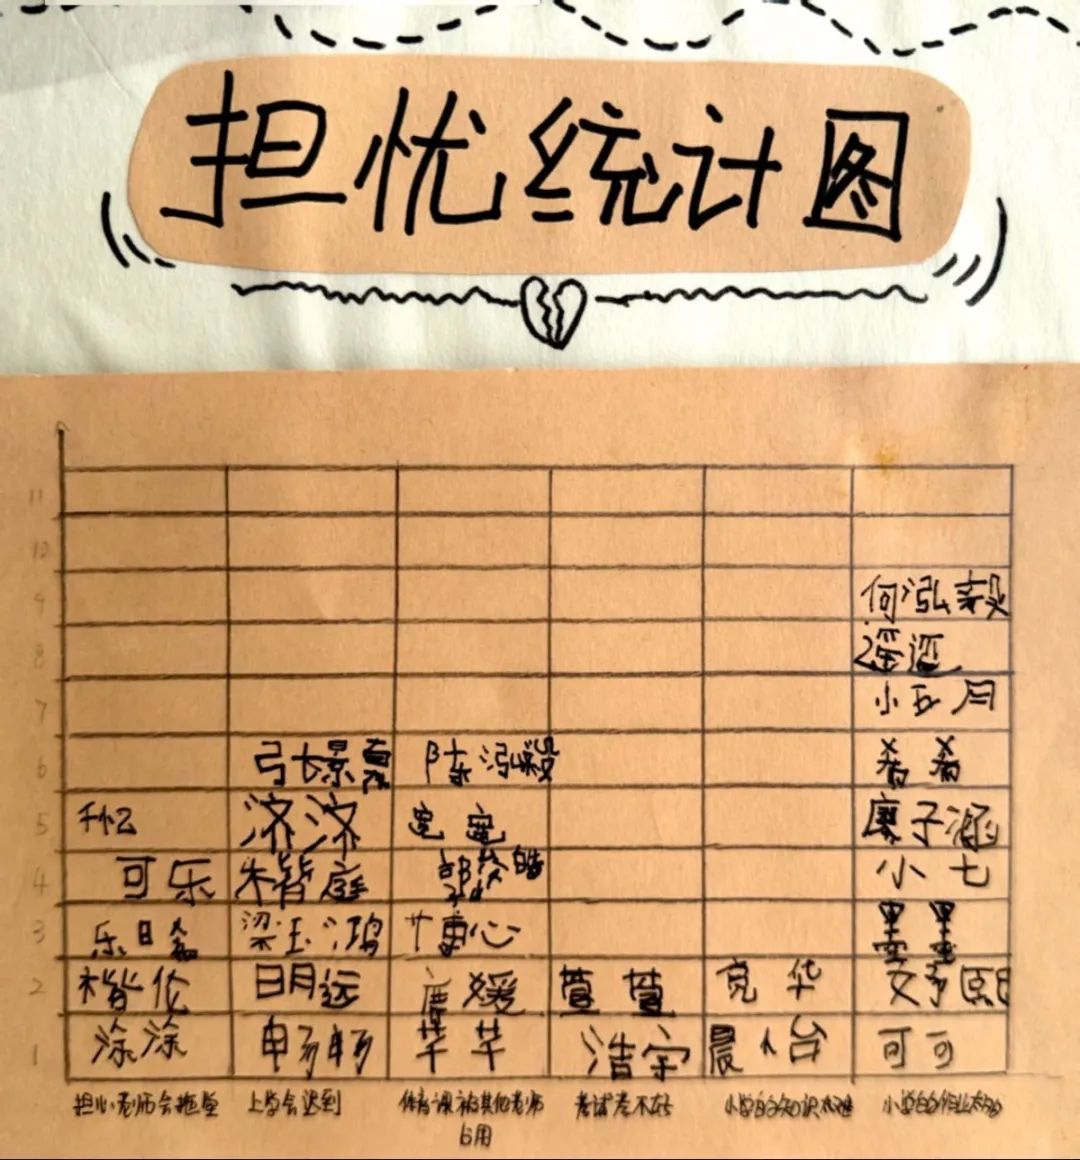 担忧统计图
11
10
9 何泓毅
8 瑶瑶
7 小五月
6 陈泓毅 希希
5 千忆 济济 宽宽 康子涵
4 可乐 朱皆庭 小七
3 梁玉鸿 博心 墨墨
2 楷伦 明远 萱萱 亮华 文予熙
1 涂涂 畅畅 芊芊 浩宇 可可
担心老师会拖堂 上学会迟到 体育课被其他老师 考试考不好 小学的知识太难 小学的作业太多
占用